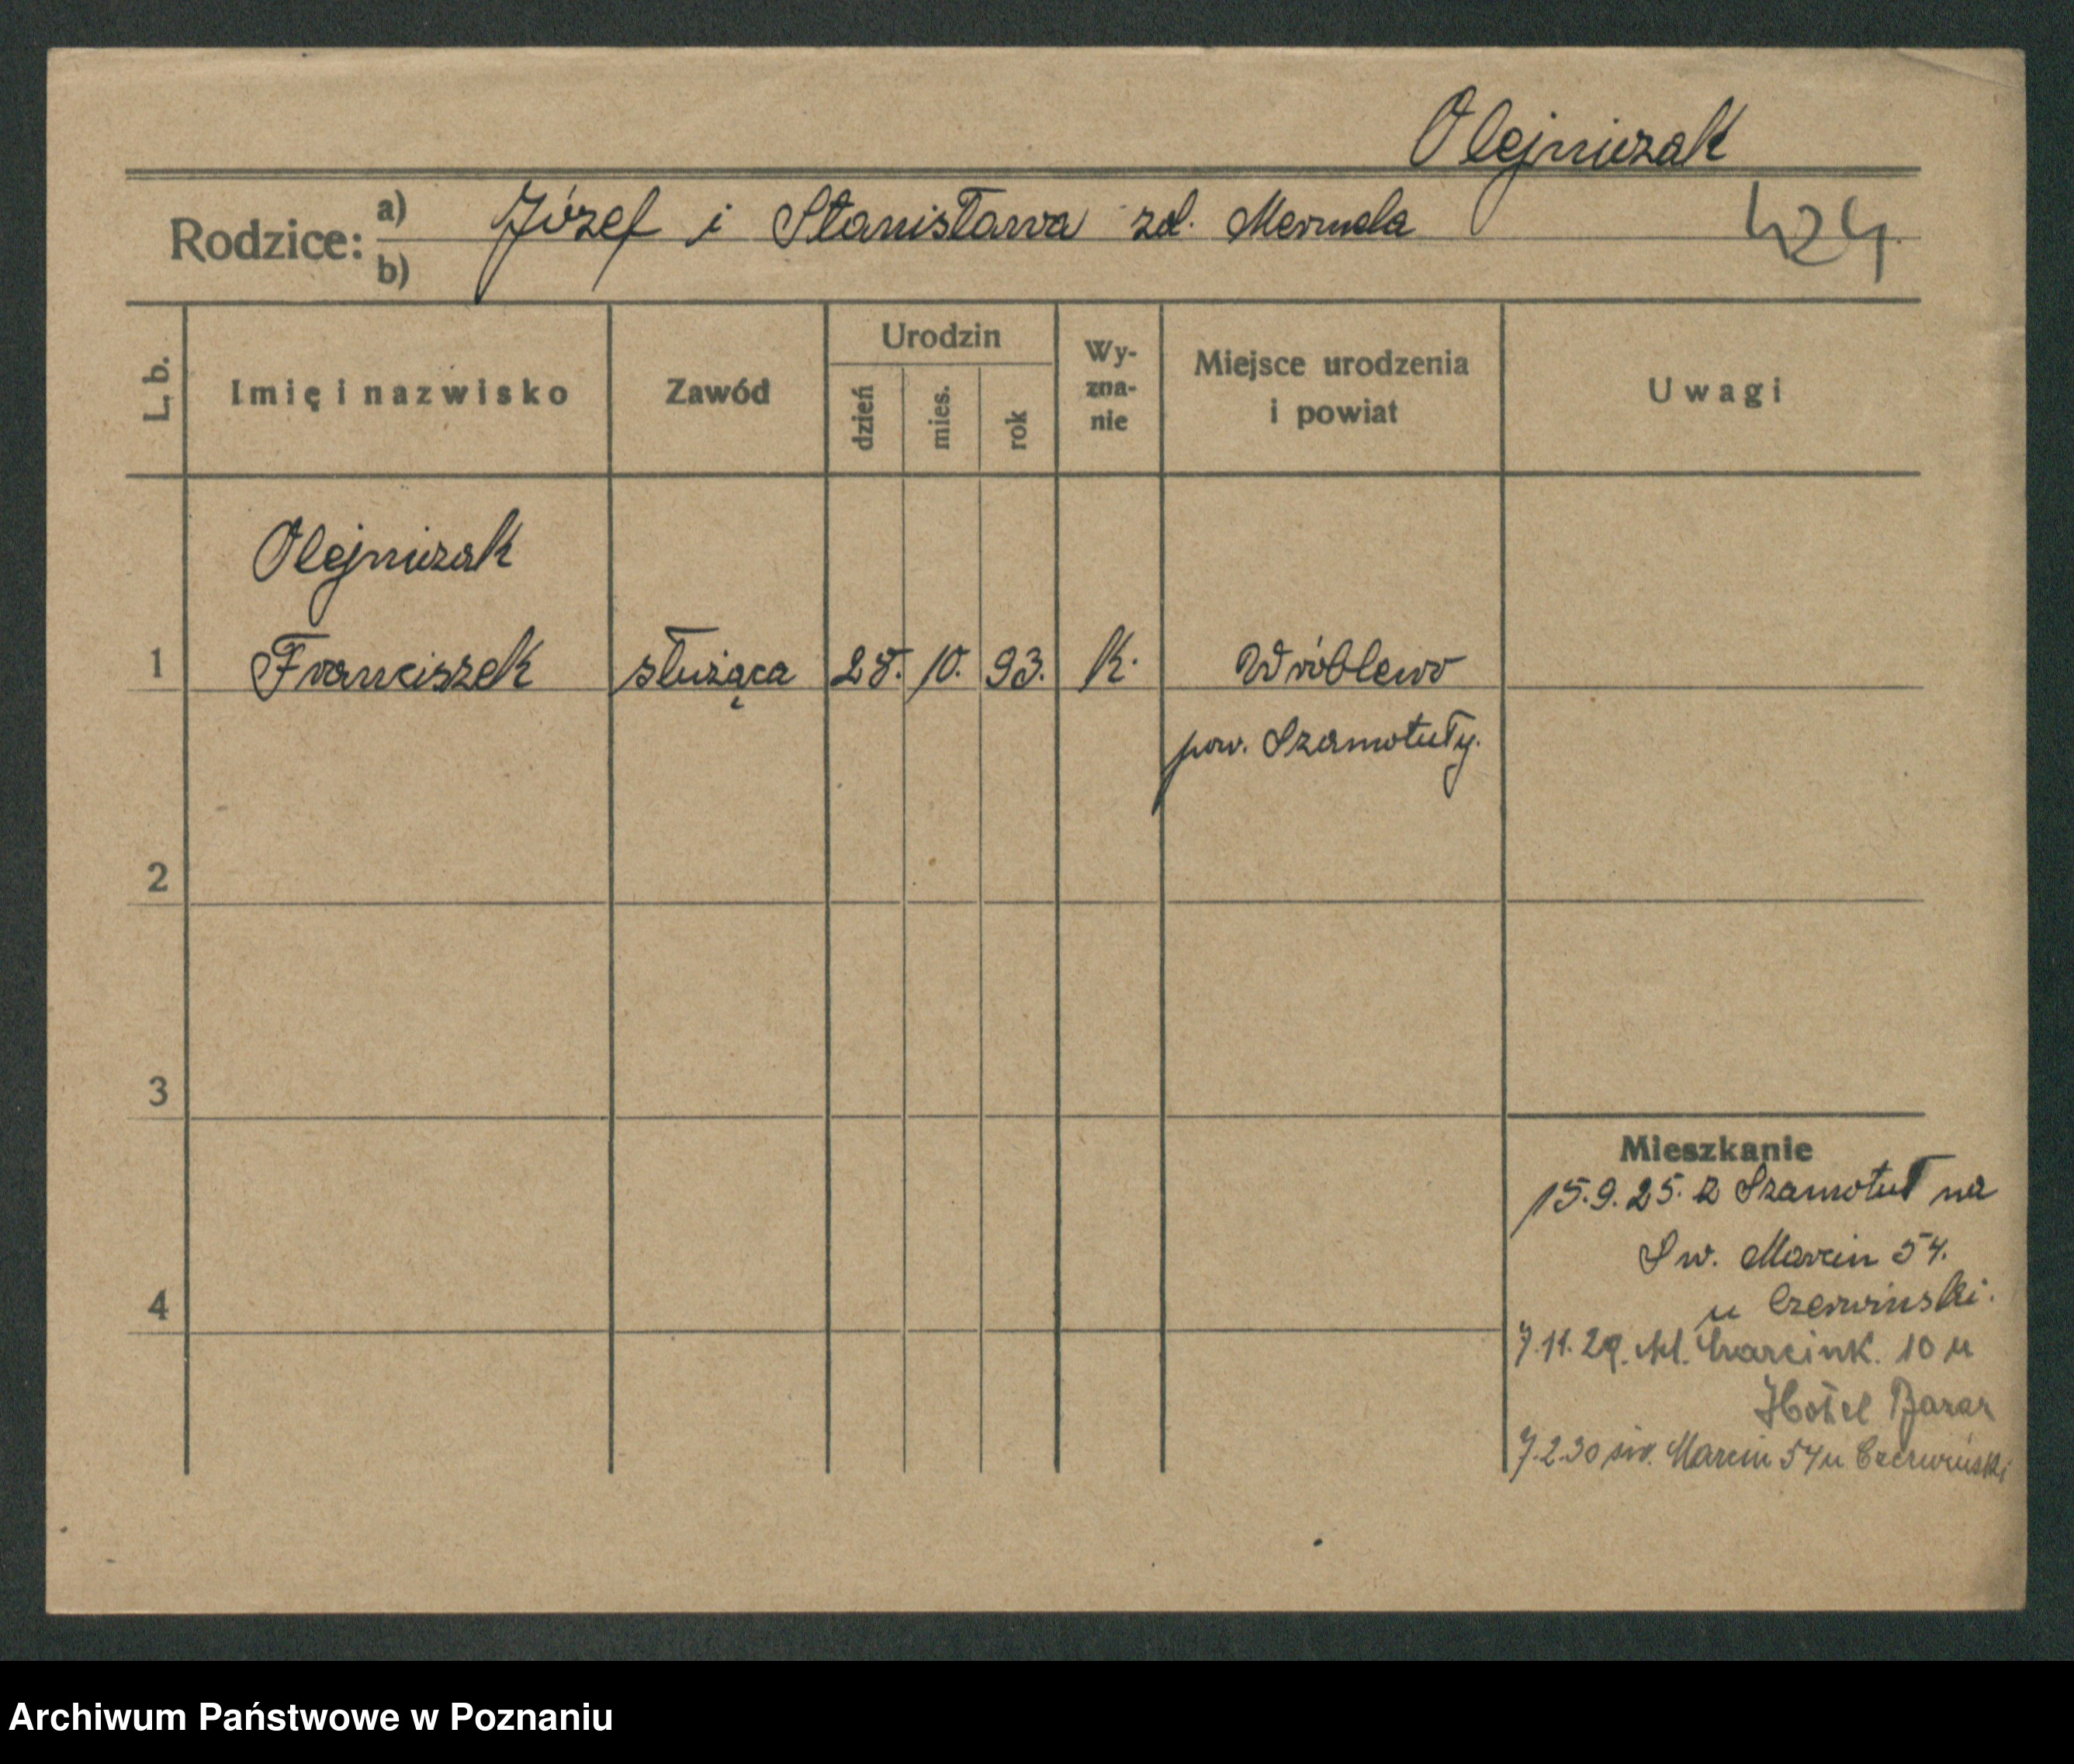 Olejniczak
Rodzice: a) Józef i Stanisława zd. 424.
b)
L. b. Imię i nazwisko Zawód Urodzin dzień mies. rok Wy-zna-nie Miejsce urodzenia i powiat Uwagi
Olejniczak
1 Franciszek służąca 28. 10. 93. k. Wróblewo
pow. Szamotuły.
2
3
Mieszkanie
15.9.25. z Szamotuł na
Sw. Marcin 54.
4 u Czerwinski.
7.11.29. Al. Marcink. 10 u
Hotel Bazar
7.2.30 św. Marcin 54 u Czerwiński
Archiwum Państwowe w Poznaniu